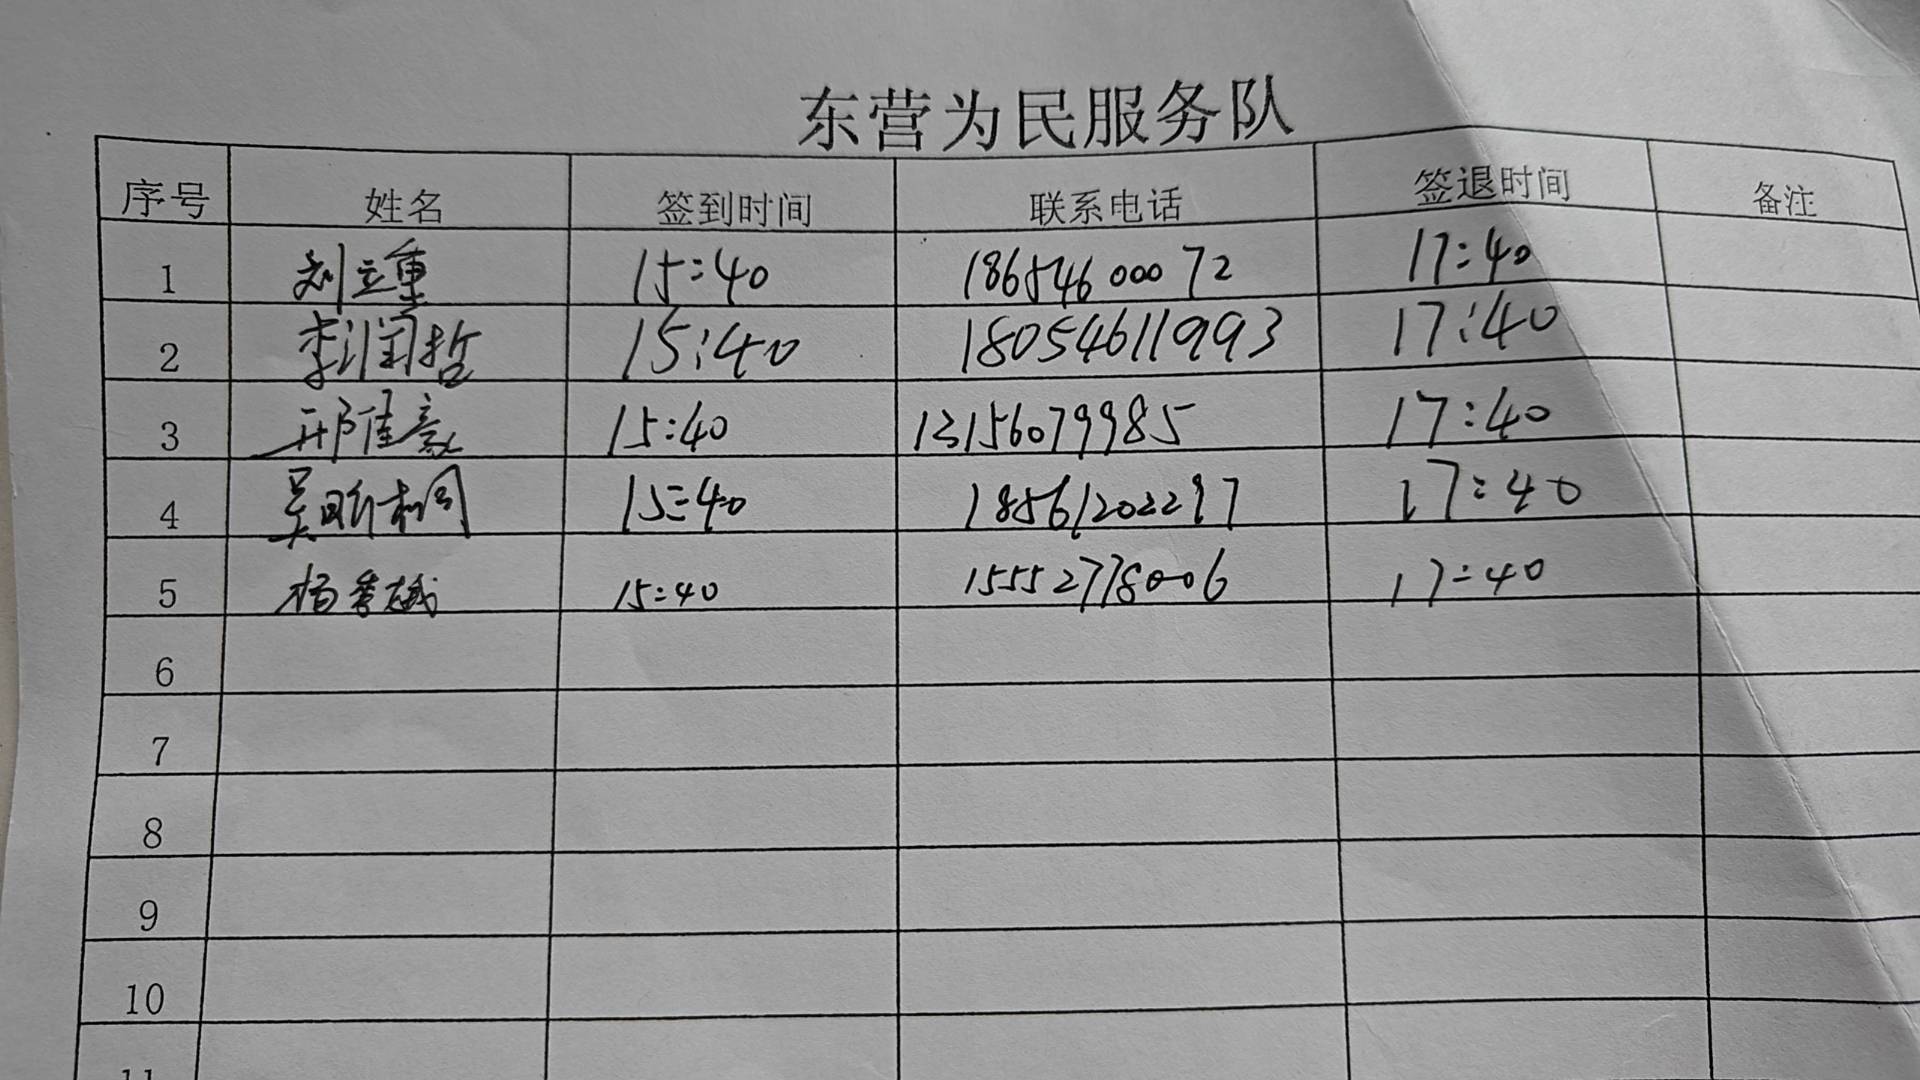 东营为民服务队
序号 姓名 签到时间 联系电话 签退时间 备注
1 刘立重 15:40 18654600072 17:40
2 李润哲 15:40 18054611993 17:40
3 邢佳豪 15:40 13156079985 17:40
4 吴昕桐 15:40 18561202297 17:40
5 杨 15:40 15552778006 17:40
6
7
8
9
10
11